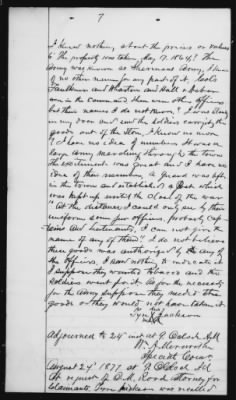 7
I know nothing about the prices or values
the property was taken, May 17, 1864. The
army was known as Shermans Army, I know
of no other name for any part of it, Cols
Faulkner and Wharton and Hall &
were in the command there were other officers
but their names I do not know. I was sitting
in my door and saw the soldiers carrying the
goods out of the store. I know no more
I have no idea of numbers it was a
large army marching through the town
the excitement was great and I have no
idea of their number. A guard was left
in the town and established a Post which
was kept up until the close of the war
"At the distance I could only see by their
uniform some few officers, probably Cap
tains and Lieutenants, I can not give the
name of any of them". I do not believe
these goods was authorized by the any of
the officers, I saw nothing to indicate it
I suppose they wanted tobacco and the
soldiers went for it. As for the necessity
for the army suppose they needed other
goods or they would not have taken it
his
mark
Jackson
Adjourned to 24" inst at 9 Oclock AM
Wm
Special Com
August 24" 1877 at 9 Oclock AM
At request of D.M. Hood attorney for
Claimants, Jackson was recalled